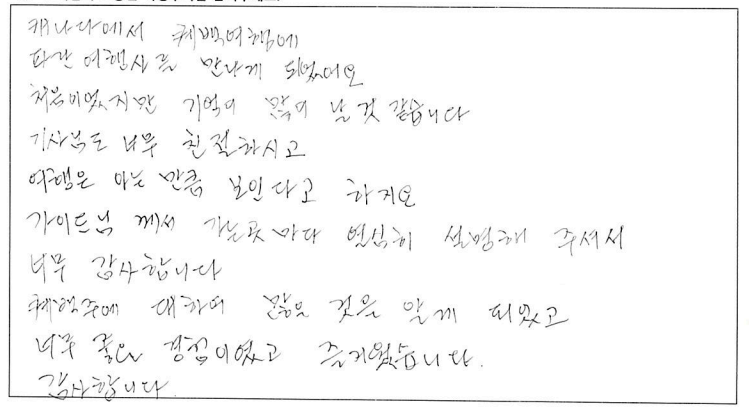 캐나다에서 퀘백여행에
파란여행사를 만나게 되었어요
처음이었지만 기억이 많이 날 것 같습니다
기사님도 너무 친절하시고
여행은 아는 만큼 보인다고 하지요
가이드님 께서 가는곳마다 열심히 설명해 주셔서
너무 감사합니다
퀘백주에 대하여 많은 것을 알게 되었고
너무 좋은 경험이였고 즐거웠습니다.
감사합니다.